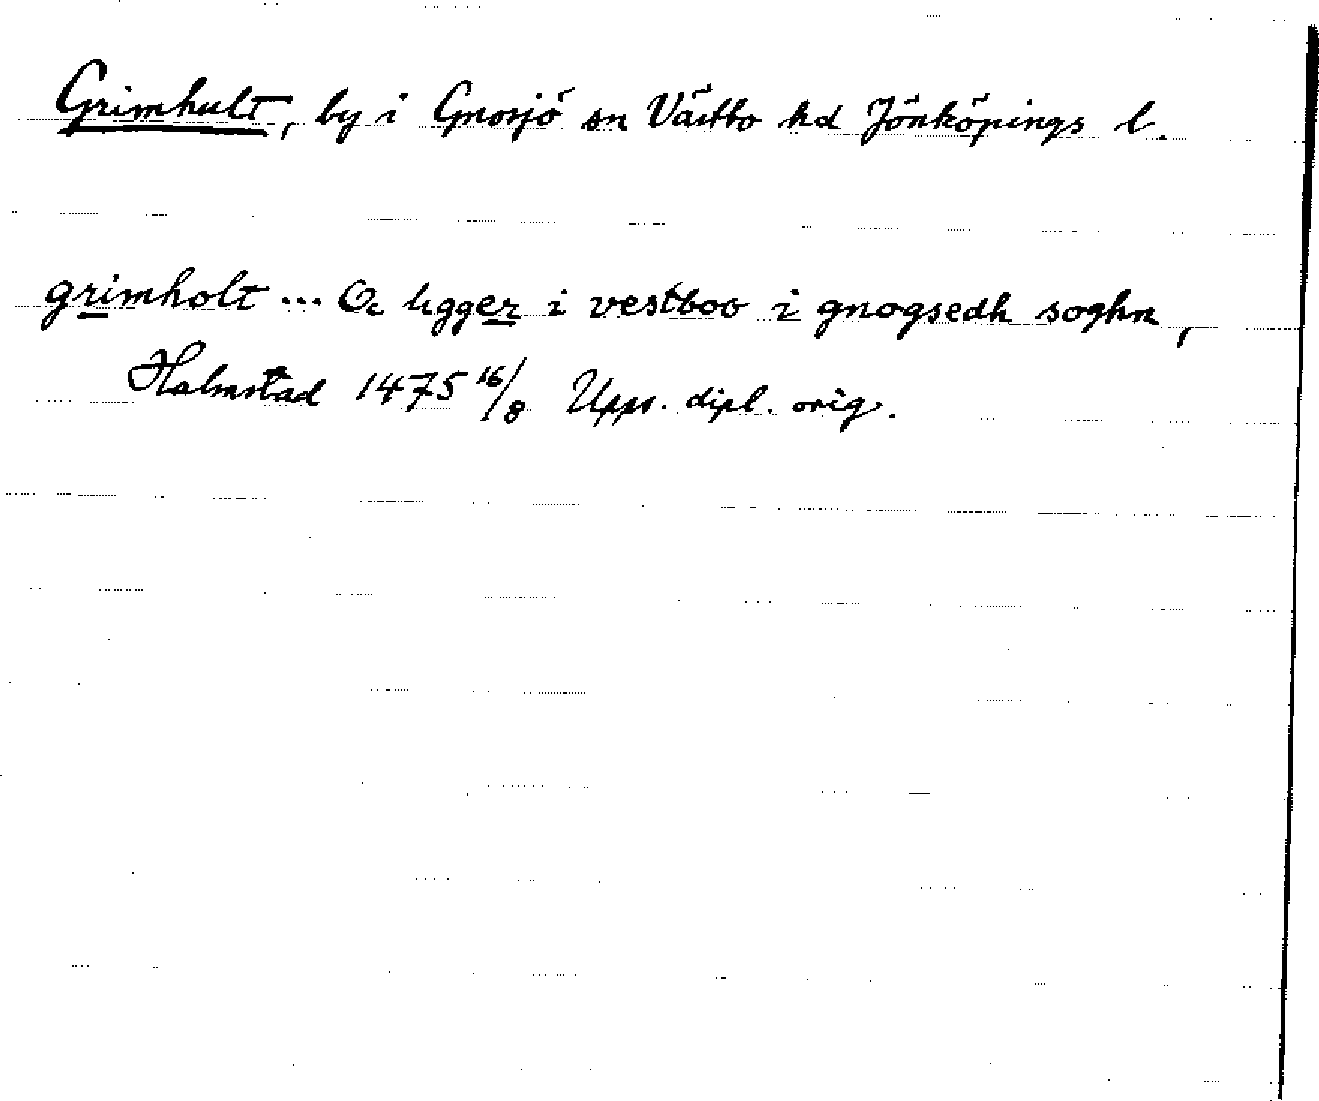 Grimhult, by i Gnosjö sn Västbo hd Jönköpings l.
grimholt ... Oc ligger i vestboo i gnogsedh soghn,
Halmstad 1475 16/8 Upps. dipl. orig.